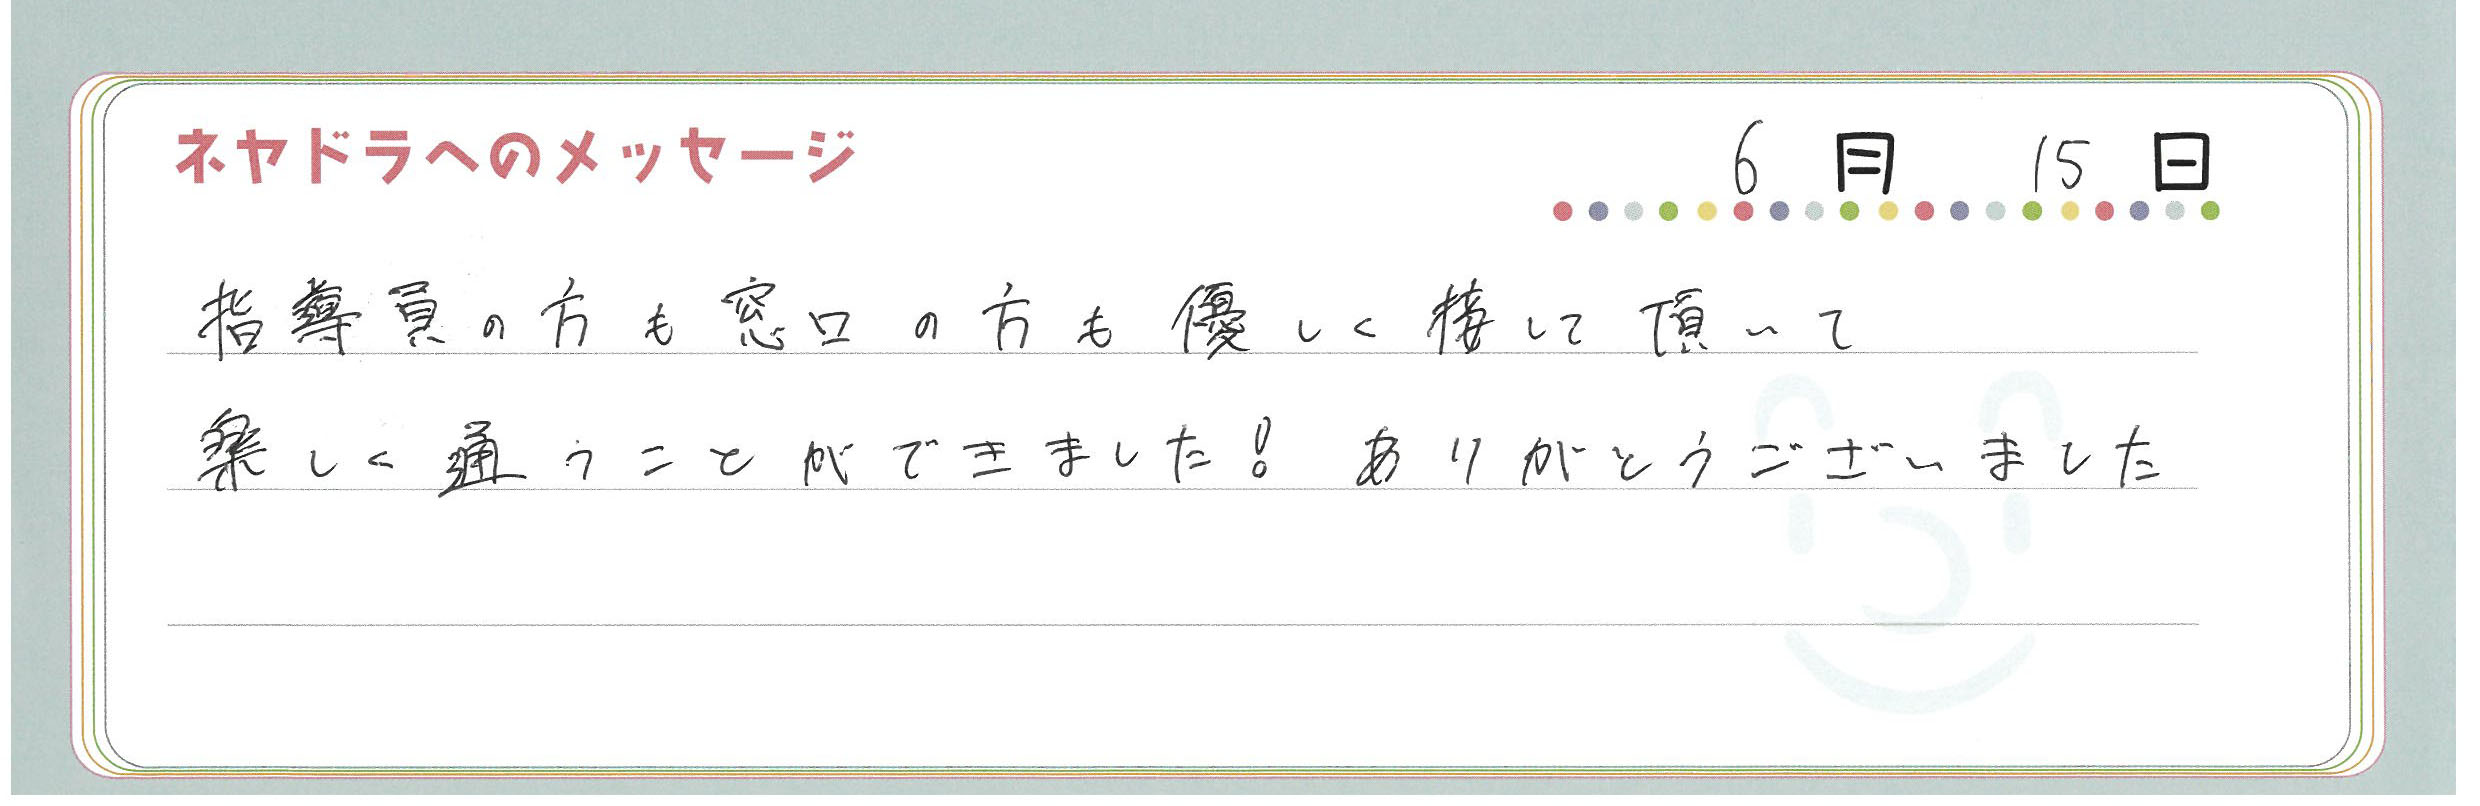 ネヤドラへのメッセージ
6月 15日
指導員の方も窓口の方も優しく接して頂いて
楽しく通うことができました! ありがとうございました